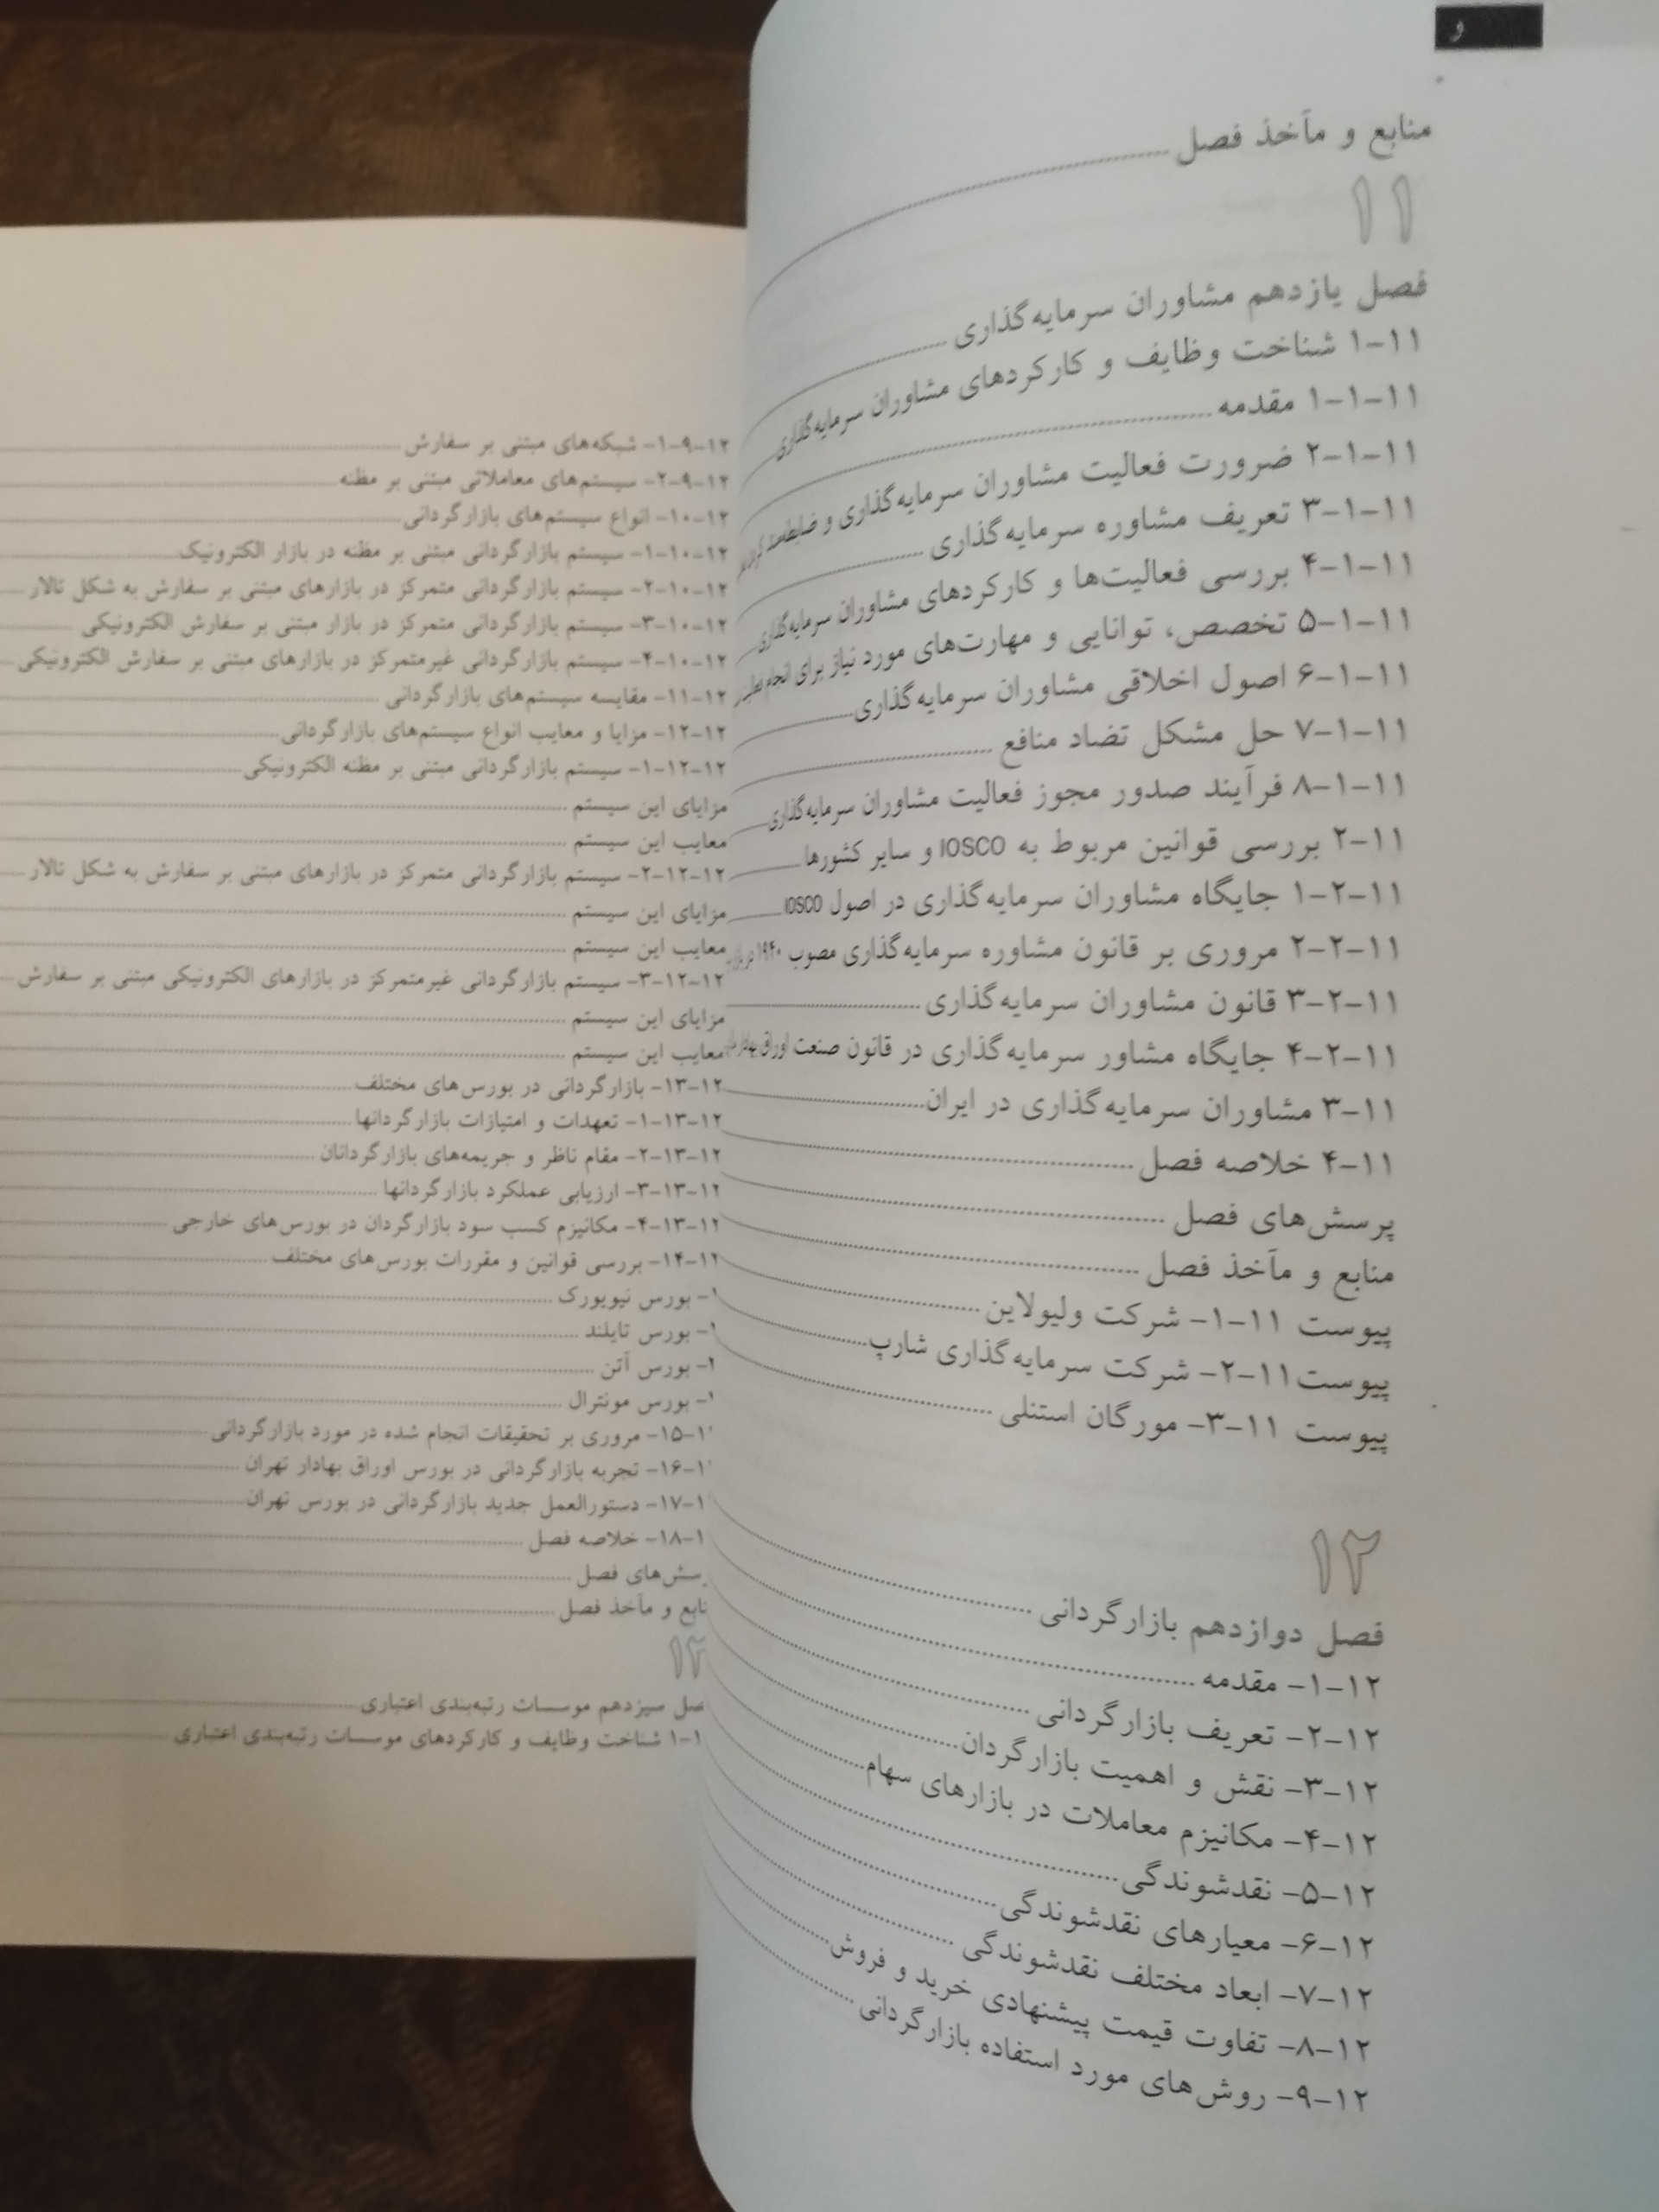 و
منابع و مآخذ فصل
۱۱
فصل یازدهم مشاوران سرمایه‌گذاری
۱-۱۱ شناخت وظایف و کارکردهای مشاوران سرمایه‌گذاری
۱-۱-۱۱ مقدمه
۲-۱-۱۱ ضرورت فعالیت مشاوران سرمایه‌گذاری و ضابطه‌مند کردن
۳-۱-۱۱ تعریف مشاوره سرمایه‌گذاری
۴-۱-۱۱ بررسی فعالیت‌ها و کارکردهای مشاوران سرمایه‌گذاری
۵-۱-۱۱ تخصص، توانایی و مهارت‌های مورد نیاز برای انجام
۶-۱-۱۱ اصول اخلاقی مشاوران سرمایه‌گذاری
۷-۱-۱۱ حل مشکل تضاد منافع
۸-۱-۱۱ فرآیند صدور مجوز فعالیت مشاوران سرمایه‌گذاری
۲-۱۱ بررسی قوانین مربوط به IOSCO و سایر کشورها
۱-۲-۱۱ جایگاه مشاوران سرمایه‌گذاری در اصول IOSCO
۲-۲-۱۱ مروری بر قانون مشاوره سرمایه‌گذاری مصوب ۱۹۴۰
۳-۲-۱۱ قانون مشاوران سرمایه‌گذاری
۴-۲-۱۱ جایگاه مشاور سرمایه‌گذاری در قانون صنعت اوراق
۳-۱۱ مشاوران سرمایه‌گذاری در ایران
۴-۱۱ خلاصه فصل
پرسش‌های فصل
منابع و مآخذ فصل
پیوست ۱۱-۱- شرکت ولیولاین
پیوست۱۱-۲- شرکت سرمایه‌گذاری شارپ
پیوست ۱۱-۳- مورگان استنلی
۱۲
فصل دوازدهم بازارگردانی
۱۲-۱- مقدمه
۱۲-۲- تعریف بازارگردانی
۱۲-۳- نقش و اهمیت بازارگردان
۱۲-۴- مکانیزم معاملات در بازارهای سهام
۱۲-۵- نقدشوندگی
۱۲-۶- معیارهای نقدشوندگی
۱۲-۷- ابعاد مختلف نقدشوندگی
۱۲-۸- تفاوت قیمت پیشنهادی خرید و فروش
۱۲-۹- روش‌های مورد استفاده بازارگردانی
۱۲-۹-۱- شبکه‌های مبتنی بر سفارش
۱۲-۹-۲- سیستم‌های معاملاتی مبتنی بر مظنه
۱۲-۱۰- انواع سیستم‌های بازارگردانی
۱۲-۱۰-۱- سیستم بازارگردانی مبتنی بر مظنه در بازار الکترونیک
۱۲-۱۰-۲- سیستم بازارگردانی متمرکز در بازارهای مبتنی بر سفارش به شکل تالار
۱۲-۱۰-۳- سیستم بازارگردانی متمرکز در بازار مبتنی بر سفارش الکترونیکی
۱۲-۱۰-۴- سیستم بازارگردانی غیرمتمرکز در بازارهای مبتنی بر سفارش الکترونیکی
۱۲-۱۱- مقایسه سیستم‌های بازارگردانی
۱۲-۱۲- مزایا و معایب انواع سیستم‌های بازارگردانی
۱۲-۱۲-۱- سیستم بازارگردانی مبتنی بر مظنه الکترونیکی
مزایای این سیستم
معایب این سیستم
۱۲-۱۲-۲- سیستم بازارگردانی متمرکز در بازارهای مبتنی بر سفارش به شکل تالار
مزایای این سیستم
معایب این سیستم
۱۲-۱۲-۳- سیستم بازارگردانی غیرمتمرکز در بازارهای الکترونیکی مبتنی بر سفارش
مزایای این سیستم
معایب این سیستم
۱۲-۱۳- بازارگردانی در بورس‌های مختلف
۱۲-۱۳-۱- تعهدات و امتیازات بازارگردانها
۱۲-۱۳-۲- مقام ناظر و جریمه‌های بازارگردانان
۱۲-۱۳-۳- ارزیابی عملکرد بازارگردانها
۱۲-۱۳-۴- مکانیزم کسب سود بازارگردان در بورس‌های خارجی
۱۲-۱۴- بررسی قوانین و مقررات بورس‌های مختلف
- بورس نیویورک
- بورس تایلند
- بورس آتن
- بورس مونترال
۱-۱۵- مروری بر تحقیقات انجام شده در مورد بازارگردانی
۱-۱۶- تجربه بازارگردانی در بورس اوراق بهادار تهران
۱-۱۷- دستورالعمل جدید بازارگردانی در بورس تهران
۱-۱۸- خلاصه فصل
سش‌های فصل
نابع و مآخذ فصل
۱۳
صل سیزدهم موسسات رتبه‌بندی اعتباری
۱-۱ شناخت وظایف و کارکردهای موسسات رتبه‌بندی اعتباری